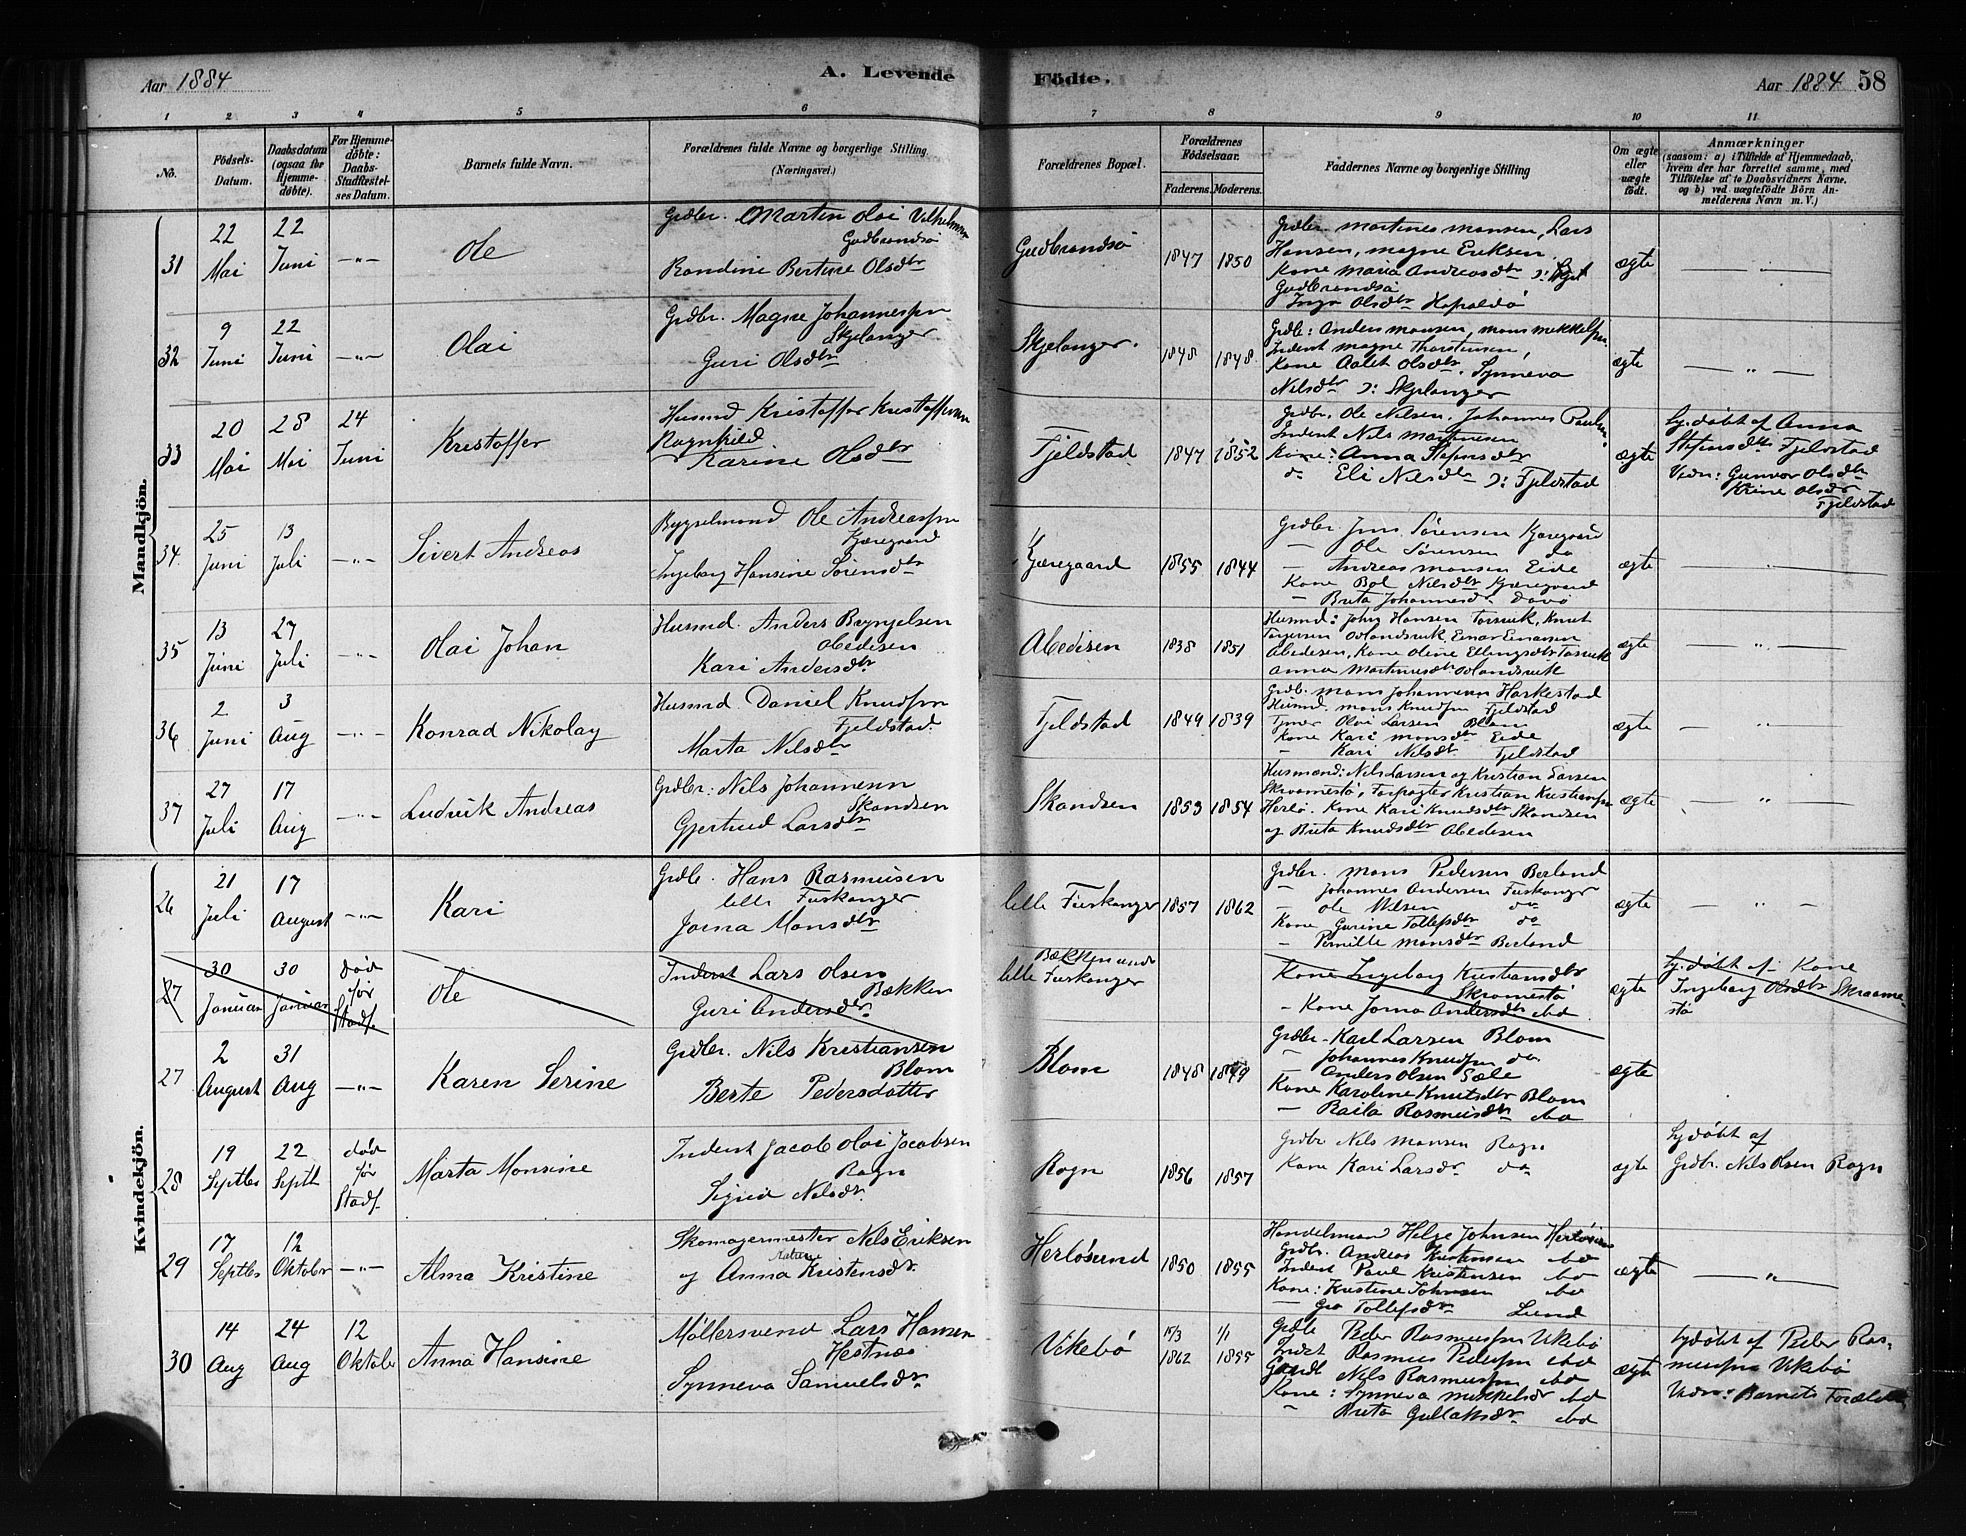 Aar 1884 A. Levende Födte. Aar 1884 58
1 2 3 4 5 6 7 8 9 10 11
No.
Födsels-Datum.
Daabsdatum (ogsaa for Hjemme-döbte).
For Hjemme-döbte: Daabs-Stadfæstelses Datum.
Barnets fulde Navn.
Forældrenes fulde Navne og borgerlige Stilling
(Næringsvei.)
Forældrenes Bopæl.
Forældrenes Födselsaar.
Faderens. Moderens.
Faddernes Navne og borgerlige Stilling
Om ægte eller uægte födt.
Anmærkninger
(saasom: a) i Tilfælde af Hjemmedaab, hvem der har forrettet samme, med Tilföielse af to Daabsvidners Navne. og b) ved uægtefödte Börn Anmelderens Navn m. V.)
Mandkjön.
31 22 Mai 22 Juni -"- Ole
Grdbr. Martin Olai Vilhelmsen
Gudbrandsö
Randine Bertine Olsdtr
Gudbrandsö 1847 1850
Grdbr. Martines Monsen, Lars
Hansen, Magne Eriksen
Kone Maria Andreasdtr
Gudbrandsö
Inga Olsdtr
ægte — " —
32 9 Juni 22 Juni -"- Olai
Grdbr. Magne Johannessn
Skjelanger
Guri Olsdtr
Skjelanger. 1848 1848
Grdbr: Anders Monsen, Mons Mikkelsn
Inderst Magne Thorstensen,
Kone Aalet Olsdtr, Synneva
Nilsdtr ɔ: Skjelanger
ægte — " —
33 20 Mai 28 Mai 24 Juni Kristoffer
Husmd Kristoffer Kristoffersen
Ragnhild
Karine Olsdtr
Fjeldstad 1847 1852
Grdbr. Ole Nilsen, Johannes Paulsen
Inderst Nils Martinesen
Kone: Anna Stefensdtr
do Eli Nilsdtr ɔ: Fjeldstad
ægte
hj.døbt af Anna
Stefensdtr Fjeldstad
Vidn: Gunvor Olsdtr
Karine Olsdtr
Fjeldstad
34. 25 Juni 13 Juli -"- Sivert Andreas
Bygselmand Ole Andreassn
Kjæregaard
Ingeborg Hansine Sørensdtr
Kjæregaard 1855 1844
Grdbr. Jens Sørensen Kjæregaard
— Ole Sørensen do
— Andreas Monsen Eide
Kone Bol Nilsdtr Kjæregaard
— Brita Johannesdtr
ægte — " —
35 13 Juni 27 Juli -"- Olai Johan
Husmd. Anders Brynjelsen
Abedisen
Kari Andersdtr
Abedisen 1838 1851
Husmd: John Hansen Torsvik, Knut
Torgersen Odlandsvik, Einar Einarsen
Abedisen, Kone Oline Ellingsdtr Torsvik
Anna Martinusdtr Odlandsvik
ægte — " —
36 2 Juni 3 Aug -"- Konrad Nikolay
Husmd Daniel Knudsn
Fjeldstad.
Marta Nilsdtr
Fjeldstad 1849 1839
Grdb. Mons Johannessn Harkestad
Husmd. Mons Knudsn Fjeldstad
Tjener Olai Larsen Blom
Kone Kari Monsdtr Eide
— Kari Nilsdtr Fjeldstad
ægte — " —
37 27 Juli 17 Aug -"- Ludvik Andreas
Grdbr: Nils Johannessn
Skandsen
Gjertrud Larsdtr
Skandsen 1853 1854
Husmænd: Nils Larsen og Kristian Larsen
Skraamestö, Forpagter Kristian Kristiansn
Herlö. Kone Kari Knudsdtr Skandsen
og Brita Knudsdtr Abedisen
ægte — " —
Kvindekjön.
26 21 Juli 17 August -"- Kari
Grdb. Hans Rasmusen
lille Fuskanger
Jorna Monsdtr
lille Fuskanger 1857 1862
Grdbr. Mons Pedersen Berland
— Johannes Andersen Fuskanger
— Ole Nilsen do
Kone Gurine Tollefsdtr do
— Pernille Monsdtr Berland
ægte — " —
27 30 Januar 30 Januar død før Stadf. Ole
Inderst Lars Olsen
Bækken
Guri Andersdtr
lille Fuskanger
Kone Ingeborg Kristiansdtr
Skraamestø
— Kone Jorna Andersdtr ibd
ægte
hj.døbt af: Kone
Ingeborg Olsdtr Skraame-
stø
27 2 August 31 Aug -"- Karen Serine
Grdbr. Nils Kristiansen
Blom
Berte Pedersdatter
Blom 1848 1849
Grdbr. Karl Larsen Blom
— Johannes Knudsn do
— Anders Olsen Sæle
Kone Karoline Knutsdtr Blom
— Raila Rasmusdtr ibd
ægte
28 19 Septbr 22 Septb død før Stadf. Marta Monsine
Inderst Jacob Olai Jacobsen
Rogn
Sigrid Nilsdtr.
Rogn 1856 1857
Grdbr Nils Monsen Rogn
Kone Kari Larsdtr do
ægte
hjdøbt af
Grdbr. Nils Olsen Rogn
29 17 Septbr 12 Oktober -"- Alma Kristine
Skomagermester Nils Eriksen
og Anna Kristensdtr.
Herløsund 1850 1855
Handelsmand Helge Johnsen Herløsund
Grdbr. Andreas Kristensen ibd
Inderst Paul Kristensen ibd
Kone: Kristine Johnsen ibd
— Gro Tollefsdtr Lund
ægte — " —
30 14 Aug 24 Aug 12 Oktober Anna Hansine
Møllersvend Lars Hansen
Hestnæs
Synneva Samuelsdtr
Vikebø 15/3 1862 1/1 1855
Grdb Peder Rasmussn Vikebø
Indst Rasmus Pedersn ibd
Nils Rasmussn ibd
Kone: Synneva Mikkelsdtr ibd
— Brita Gullaksdtr ibd
ægte
hjdøbt af Peder Ras-
mussn Vikebø
Vidn: Barnets Forældre